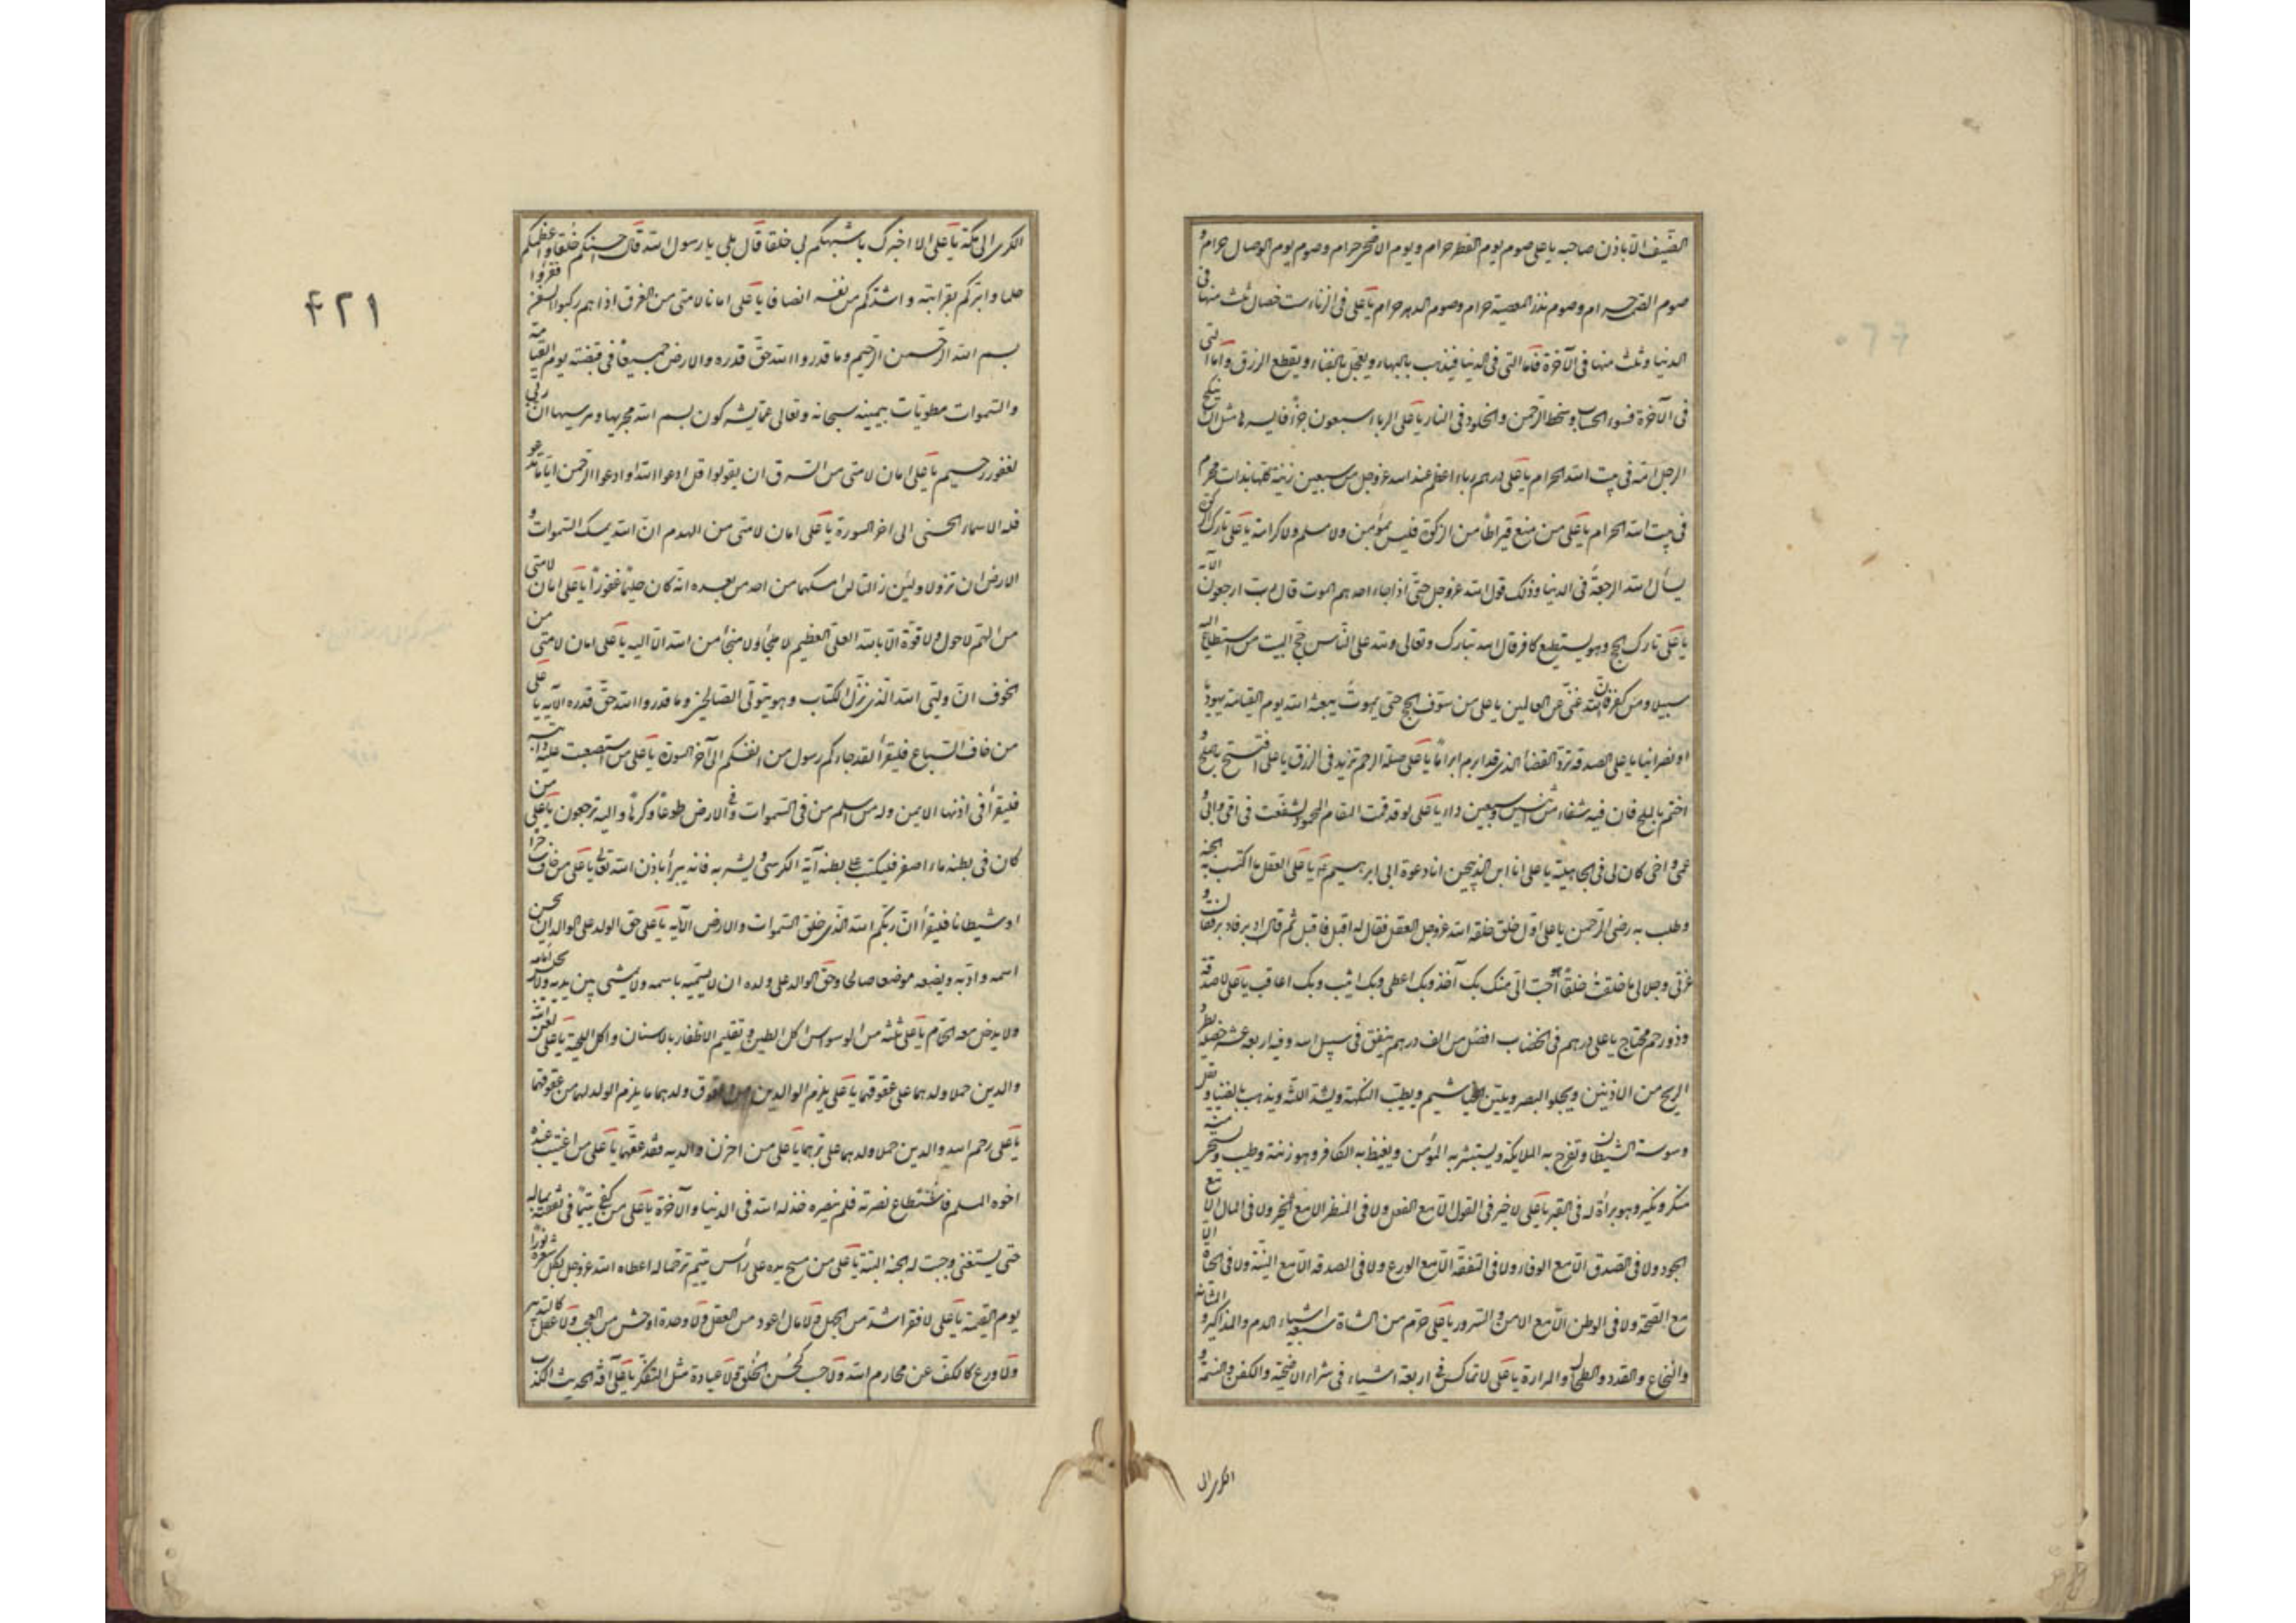 الضيف الا باذن صاحبه يا على صوم يوم الفطر حرام و يوم الاضحى حرام و صوم يوم الوصال حرام و
صوم الصمت حرام و صوم نذر المعصية حرام و صوم الدهر حرام يا على فى الزناء ست خصال ثلث منها فى
الدنيا و ثلث منها فى الآخرة فاما التى فى الدنيا فيذهب بالبهاء و يعجل بالفناء و يقطع الرزق و اما التى
فى الآخرة فسوء الحساب و سخط الرحمن و الخلود فى النار يا على الرباء سبعون جزأ فايسرها مثل ان ينكح
الرجل امه فى بيت الله الحرام يا على درهم رباء اعظم عند الله عز وجل من سبعين زنية كلها بذات محرم
فى بيت الله الحرام يا على من منع قيراطا من الزكوة فليس بمؤمن ولا مسلم ولا كرامة يا على تارك الزكوة
يسأل الله الرجعة فى الدنيا و ذلك قول الله عز وجل حتى اذا جاء احدهم الموت قال رب ارجعون الآية
يا على تارك الحج و هو يستطيع كافر قال الله تبارك و تعالى و لله على الناس حج البيت من استطاع اليه
سبيلا و من كفر فان الله غنى عن العالمين يا على من سوف الحج حتى يموت يبعثه الله يوم القيامة يهوديا
او نصرانيا يا على الصدقة ترد القضاء الذى قد ابرم ابراما يا على صلة الرحم تزيد فى الرزق يا على افتتح بالملح و
اختم بالملح فان فيه شفاء من اثنين و سبعين داء يا على لو قد قمت المقام المحمود لشفعت فى ابى و امى و
عمى و اخى كان لى فى الجاهلية يا على انا ابن الذبيحين انا دعوة ابى ابرهيم يا على العقل ما اكتسب به الجنة
و طلب به رضى الرحمن يا على اول خلق خلقه الله عز وجل العقل فقال له اقبل فاقبل ثم قال ادبر فادبر فقال و
عزتى و جلالى ما خلقت خلقا هو احب الى منك بك آخذ و بك اعطى و بك اثيب و بك اعاقب يا على لا صدقة
و ذو رحم محتاج يا على درهم فى الخضاب افضل من الف درهم ينفق فى سبيل الله و فيه اربعة عشر خصلة يطرد
الريح من الاذنين و يجلو البصر و يلين الخياشيم و يطيب النكهة و يشد اللثة و يذهب بالضنا و يقل
وسوسة الشيطان و تفرح به الملايكة و يستبشر به المؤمن و يغيظ به الكافر و هو زينة و طيب و يستحى منه
منكر و نكير و هو براءة له فى القبر يا على لا خير فى القول الا مع الفعل ولا فى المنظر الا مع المخبر ولا فى المال الا مع
الجود ولا فى الصدق الا مع الوفاء ولا فى التفقه الا مع الورع ولا فى الصدقة الا مع النية ولا فى الحياة الا
مع الصحة ولا فى الوطن الا مع الامن و السرور يا على حرم من الشاة سبعة اشياء الدم و المذاكير و المثانة
و النخاع و الغدد و الطحال و المرارة يا على لا تماكس فى اربعة اشياء فى شراء الاضحية و الكفن و النسمة و
الكرى الى
۴۲۱
الكرى الى مكة يا على الا اخبرك باشبهكم بى خلقا قال بلى يا رسول الله قال احسنكم خلقا و اعظمكم
حلما و ابركم بقرابته و اشدكم من نفسه انصافا يا على امان لامتى من الغرق اذا هم ركبوا السفن فقرؤا
بسم الله الرحمن الرحيم و ما قدروا الله حق قدره و الارض جميعا فى قبضته يوم القيامة
و السموات مطويات بيمينه سبحانه و تعالى عما يشركون بسم الله مجريها و مرسيها ان ربى
لغفور رحيم يا على امان لامتى من السرق ان يقولوا قل ادعوا الله او ادعوا الرحمن ايا ما تدعو
فله الاسماء الحسنى الى اخر السورة يا على امان لامتى من الهدم ان الله يمسك السموات و
الارض ان تزولا و لئن زالتا ان امسكهما من احد من بعده انه كان حليما غفورا يا على امان لامتى
من الهم لا حول و لا قوة الا بالله العلى العظيم لا ملجأ و لا منجأ من الله الا اليه يا على امان لامتى من
الخوف ان وليى الله الذى نزل الكتاب و هو يتولى الصالحين و ما قدروا الله حق قدره الآية يا على
من خاف السباع فليقرأ لقد جاءكم رسول من انفسكم الى آخر السورة يا على من استصعبت عليه دابته
فليقرأ فى اذنها الايمن و له اسلم من فى السموات و الارض طوعا و كرها و اليه ترجعون يا على من
كان فى بطنه ماء اصفر فليكتب على بطنه آية الكرسى و يشربه فانه يبرأ باذن الله تعالى يا على من خاف ساحرا
او شيطانا فليقرأ ان ربكم الله الذى خلق السموات و الارض الآية يا على حق الولد على الوالد ان يحسن
اسمه و ادبه و يضعه موضعا صالحا و حق الوالد على ولده ان لا يسميه باسمه ولا يمشى بين يديه ولا يجلس امامه
ولا يدخل معه الحمام يا على ثلثة من الوسواس اكل الطين و تقليم الاظفار بالاسنان و اكل اللحية يا على لعن الله
والدين حملا ولدهما على عقوقهما يا على يلزم الوالدين من العقوق ولدهما ما يلزم الولد لهما من عقوقهما
يا على رحم الله والدين حملا ولدهما على برهما يا على من احزن والديه فقد عقهما يا على من اغتيب عنده
اخوه المسلم فاستطاع نصرته فلم ينصره خذله الله فى الدنيا و الآخرة يا على من كفى يتيما فى نفقته بماله
حتى يستغنى وجبت له الجنة البتة يا على من مسح يده على رأس يتيم ترحما له اعطاه الله عز وجل بكل شعرة نورا
يوم القيمة يا على لا فقر اشد من الجهل ولا مال اعود من العقل ولا وحدة اوحش من العجب ولا عقل كالتدبير
ولا ورع كالكف عن محارم الله ولا حسب كحسن الخلق ولا عبادة مثل التفكر يا على آفة الحديث الكذب